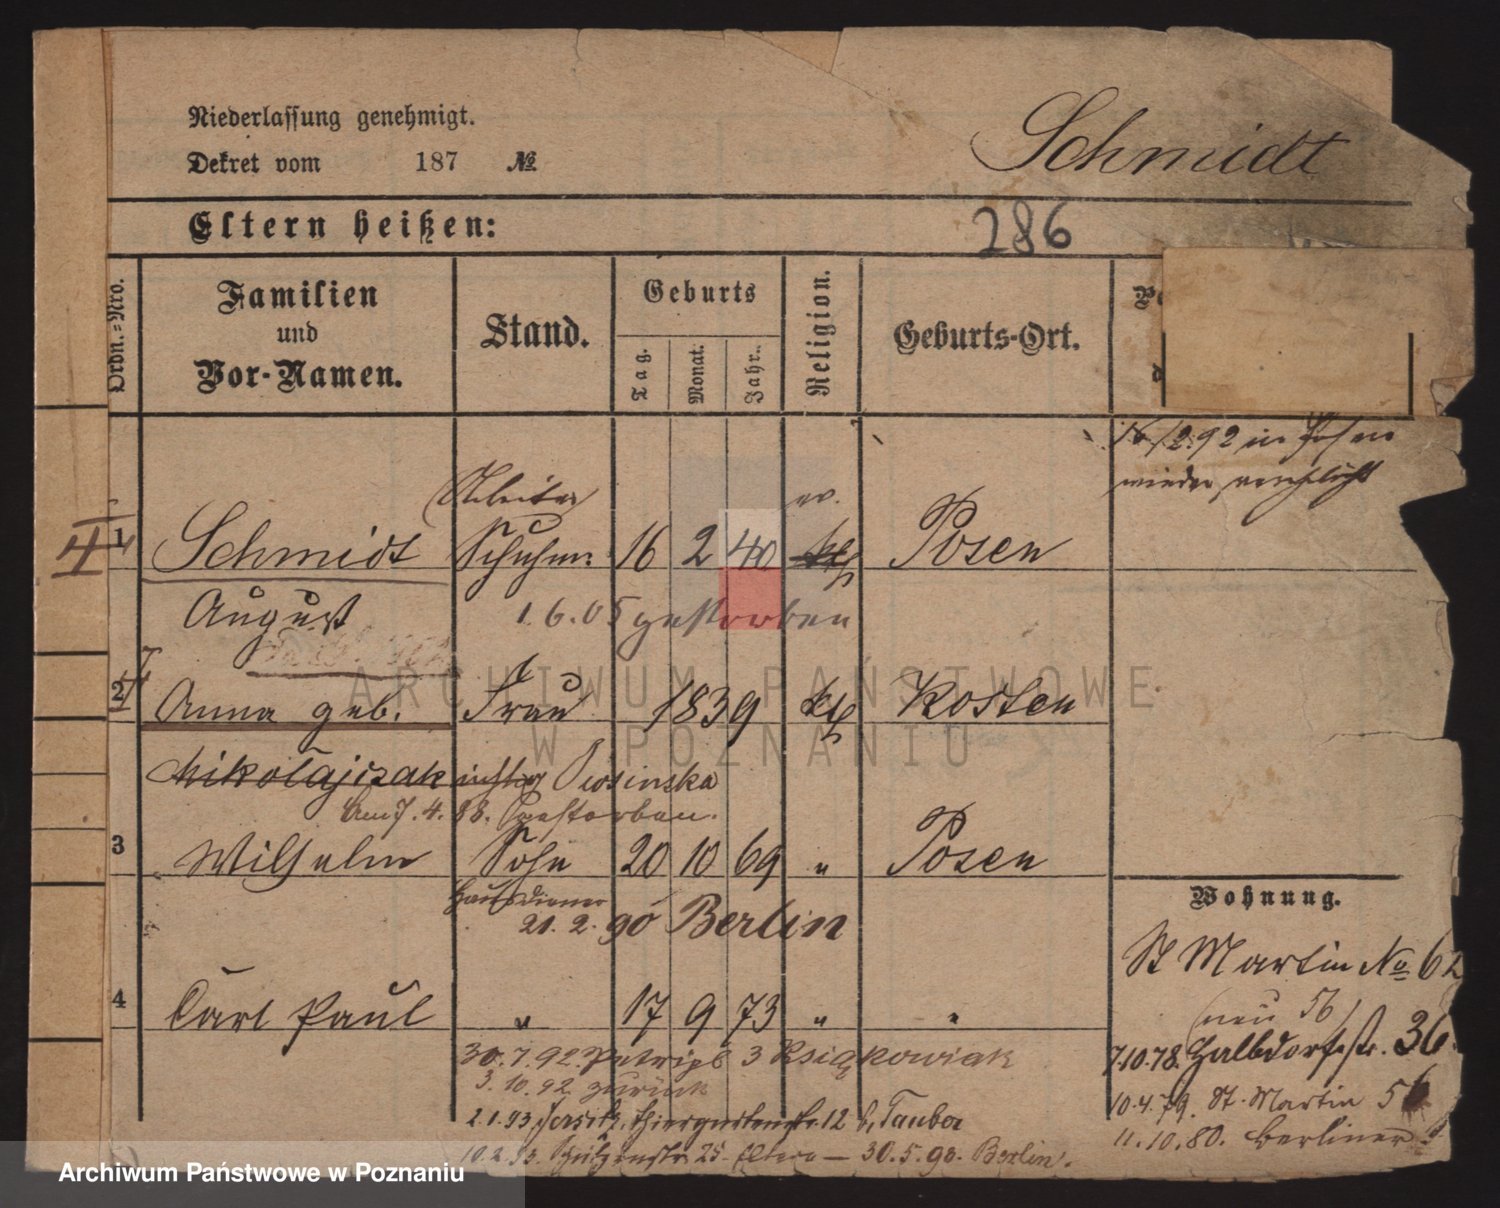 Niederlassung genehmigt.
Schmidt
Dekret vom 187 №
Eltern heißen:
286
Ordn.=Nro.
Familien und Vor-Namen.
Stand.
Geburts
Tag.
Monat.
Jahr.
Religion.
Geburts-Ort.
2.92 in Posen
wieder
Arbeiter
ev.
1 Schmidt Schuhm. 16 2 40 kth Posen
August 1.6.05 gestorben
2 Anna geb. Frau 1839 kth Kosten
Mikołajczak richtig Piosinska
Am 7.4.88. Gestorben.
3 Wilhelm Sohn 20 10 69 " Posen
Hausdiener
21.2.90 Berlin
Wohnung.
St Martin No 62
4 Carl Paul " 17 9 73 " "
(neu 56)
30.7.92. Petripl 3 Książkowiak
7.10.78. Halbdorfstr. 36.
3.10.92 zurück
10.4.79. St. Martin 56
2.1.93 Jersitz, Thiergartenstr. 12 b, Tauber
11.10.80. Berliner
10.2.93. Schützenstr. 25 Eltern — 30.5.93. Berlin.
ARCHIWUM PAŃSTWOWE
W POZNANIU
Archiwum Państwowe w Poznaniu